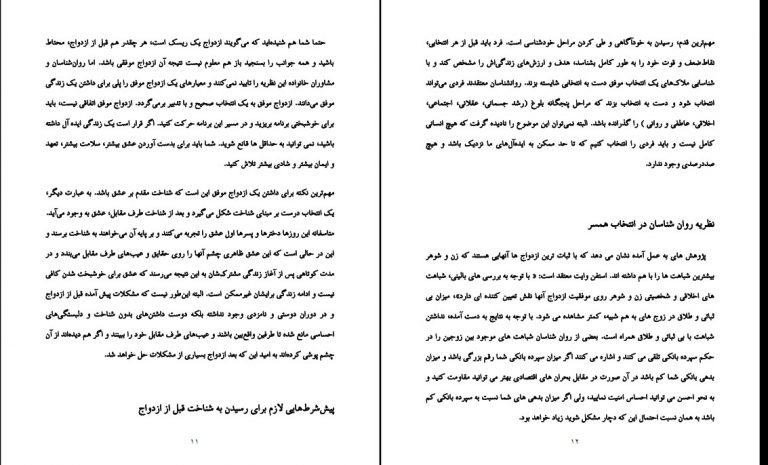 حتما شما هم شنیده‌اید که می‌گویند ازدواج یک ریسک است، هر چقدر هم قبل از ازدواج، محتاط
باشید و همه جوانب را بسنجید باز هم معلوم نیست نتیجه آن ازدواج موفقی باشد. اما روان‌شناسان و
مشاوران خانواده این نظریه را تایید نمی‌کنند و معیارهای یک ازدواج موفق را پلی برای داشتن یک زندگی
موفق می‌دانند. ازدواج موفق به یک انتخاب صحیح و با تدبیر برمی‌گردد. ازدواج موفق اتفاقی نیست، باید
برای خوشبختی برنامه بریزید و در مسیر این برنامه حرکت کنید. اگر قرار است یک زندگی ایده آل داشته
باشید، نمی توانید به حداقل ها قانع شوید. شما باید برای بدست آوردن عشق بیشتر، سلامت بیشتر، تعهد
و ایمان بیشتر و شادی بیشتر تلاش کنید.
مهم‌ترین نکته برای داشتن یک ازدواج موفق این است که شناخت مقدم بر عشق باشد. به عبارت دیگر،
یک انتخاب درست بر مبنای شناخت شکل می‌گیرد و بعد از شناخت طرف مقابل، عشق به وجود می‌آید.
متاسفانه این روزها دخترها و پسرها اول عشق را تجربه می‌کنند و بر پایه آن می‌خواهند به شناخت برسند و
این در حالی است که این عشق ظاهری چشم آنها را روی حقایق و عیب‌های طرف مقابل می‌بندد و در
مدت کوتاهی پس از آغاز زندگی مشترک‌شان به این نتیجه می‌رسند که عشق برای خوشبخت شدن کافی
نیست و ادامه زندگی برایشان غیرممکن است. البته این‌طور نیست که مشکلات پیش آمده قبل از ازدواج
و در دوران دوستی و نامزدی وجود نداشته بلکه دوست داشتن‌های بدون شناخت و دلبستگی‌های
احساسی مانع شده تا طرفین واقع‌بین باشند و عیب‌های طرف مقابل خود را ببینند و اگر هم دیده‌اند از آن
چشم پوشی کرده‌اند به امید این که بعد ازدواج بسیاری از مشکلات حل خواهد شد.
پیش‌شرط‌هایی لازم برای رسیدن به شناخت قبل از ازدواج
۱۱
مهم‌ترین قدم، رسیدن به خودآگاهی و طی کردن مراحل خودشناسی است. فرد باید قبل از هر انتخابی،
نقاط‌ضعف و قوت خود را به طور کامل بشناسد، هدف و ارزش‌های زندگی‌اش را مشخص کند و با
شناسایی ملاک‌های یک انتخاب موفق دست به انتخابی شایسته بزند. روانشناسان معتقدند فردی می‌تواند
انتخاب شود و دست به انتخاب بزند که مراحل پنجگانه بلوغ (رشد جسمانی، عقلانی، اجتماعی،
اخلاقی، عاطفی و روانی ) را گذرانده باشد. البته نمی‌توان این موضوع را نادیده گرفت که هیچ انسانی
کامل نیست و باید فردی را انتخاب کنیم که تا حد ممکن به ایده‌آل‌های ما نزدیک باشد و هیچ
صددرصدی وجود ندارد.
نظریه روان شناسان در انتخاب همسر
پژوهش های به عمل آمده نشان می دهد که با ثبات ترین ازدواج ها آنهایی هستند که زن و شوهر
بیشترین شباهت ها را با هم داشته اند. استفن وایت معتقد است: « با توجه به بررسی های بالینی، شباهت
های اخلاقی و شخصیتی زن و شوهر روی موفقیت ازدواج آنها نقش تعیین کننده ای دارد»، میزان بی
ثباتی و طلاق در زوج های به هم شبیه، کمتر مشاهده می شود. با توجه به نتایج به دست آمده، نداشتن
شباهت با بی ثباتی و طلاق همراه است. بعضی از روان شناسان شباهت های موجود بین زوجین را در
حکم سپرده بانکی تلقی می کنند و اشاره می کنند اگر میزان سپرده بانکی شما رقم بزرگی باشد و میزان
بدهی بانکی شما کم باشد در آن صورت در مقابل بحران های اقتصادی بهتر می توانید مقاومت کنید و
به نحو احسن می توانید احساس امنیت نمایید، ولی اگر میزان بدهی های شما نسبت به سپرده بانکی کم
باشد به همان نسبت احتمال این که دچار مشکل شوید زیاد خواهد بود.
۱۲